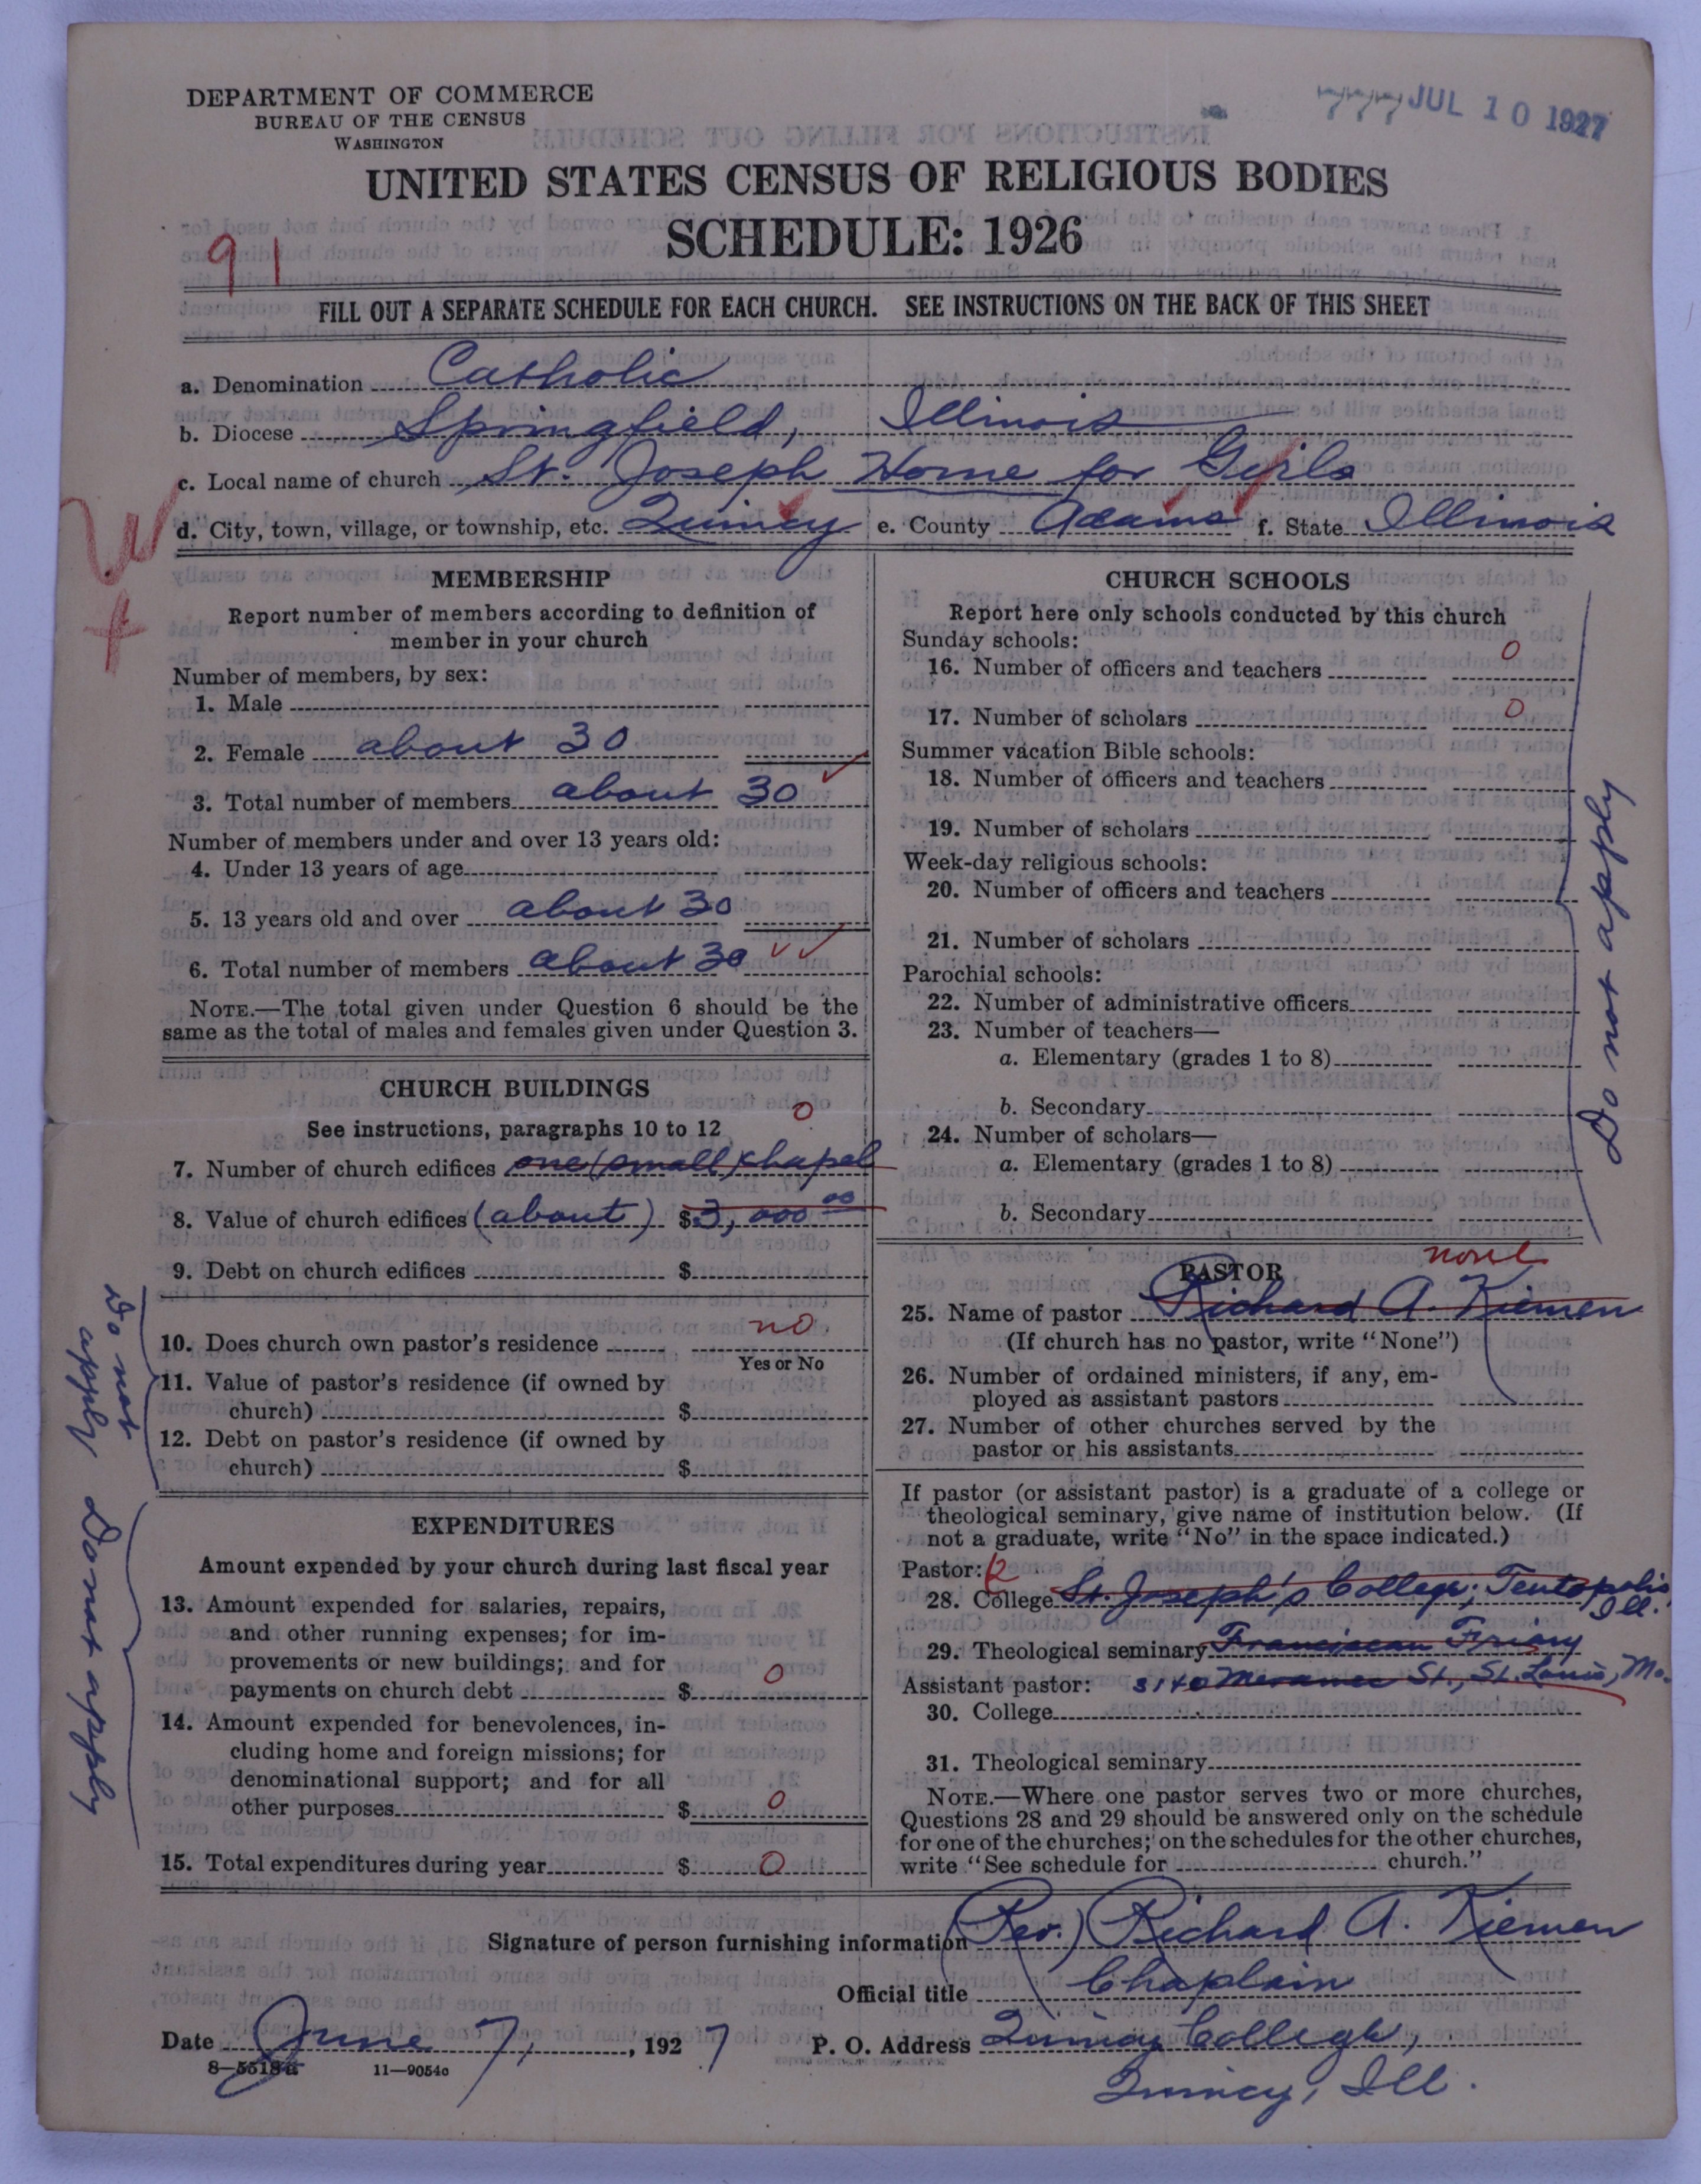 DEPARTMENT OF COMMERCE
BUREAU OF THE CENSUS
WASHINGTON
777 JUL 10 1927
UNITED STATES CENSUS OF RELIGIOUS BODIES
SCHEDULE: 1926
91
FILL OUT A SEPARATE SCHEDULE FOR EACH CHURCH. SEE INSTRUCTIONS ON THE BACK OF THIS SHEET
a. Denomination Catholic
b. Diocese Springfield, Illinois
c. Local name of church St. Joseph Home for Girls
d. City, town, village, or township, etc. Quincy e. County Adams f. State Illinois
MEMBERSHIP
Report number of members according to definition of
member in your church
Number of members, by sex:
1. Male
2. Female about 30
3. Total number of members about 30
Number of members under and over 13 years old:
4. Under 13 years of age
5. 13 years old and over about 30
6. Total number of members about 30
NOTE.—The total given under Question 6 should be the
same as the total of males and females given under Question 3.
CHURCH BUILDINGS
See instructions, paragraphs 10 to 12
0
7. Number of church edifices one (small) chapel
8. Value of church edifices (about) $3,000 00
9. Debt on church edifices $
10. Does church own pastor's residence no
Yes or No
11. Value of pastor's residence (if owned by
church) $
12. Debt on pastor's residence (if owned by
church) $
Do not
apply
EXPENDITURES
Amount expended by your church during last fiscal year
13. Amount expended for salaries, repairs,
and other running expenses; for im-
provements or new buildings; and for
payments on church debt $ 0
14. Amount expended for benevolences, in-
cluding home and foreign missions; for
denominational support; and for all
other purposes $ 0
15. Total expenditures during year $ 0
Do not apply
CHURCH SCHOOLS
Report here only schools conducted by this church
Sunday schools:
16. Number of officers and teachers 0
17. Number of scholars 0
Summer vacation Bible schools:
18. Number of officers and teachers
19. Number of scholars
Week-day religious schools:
20. Number of officers and teachers
21. Number of scholars
Parochial schools:
22. Number of administrative officers
23. Number of teachers—
a. Elementary (grades 1 to 8)
b. Secondary
24. Number of scholars—
a. Elementary (grades 1 to 8)
b. Secondary
Do not apply
PASTOR none
25. Name of pastor Richard A. Kiemen
(If church has no pastor, write "None")
26. Number of ordained ministers, if any, em-
ployed as assistant pastors
27. Number of other churches served by the
pastor or his assistants
If pastor (or assistant pastor) is a graduate of a college or
theological seminary, give name of institution below. (If
not a graduate, write "No" in the space indicated.)
Pastor:
28. College St. Joseph's College, Teutopolis
Ill.
29. Theological seminary Franciscan Friary
Assistant pastor: 3140 Meramec St., St. Louis, Mo.
30. College
31. Theological seminary
NOTE.—Where one pastor serves two or more churches,
Questions 28 and 29 should be answered only on the schedule
for one of the churches; on the schedules for the other churches,
write "See schedule for church."
Signature of person furnishing information (Rev.) Richard A. Kiemen
Official title Chaplain
Date June 7, 1927 P. O. Address Quincy College,
8—5518a 11—9054c
Quincy, Ill.